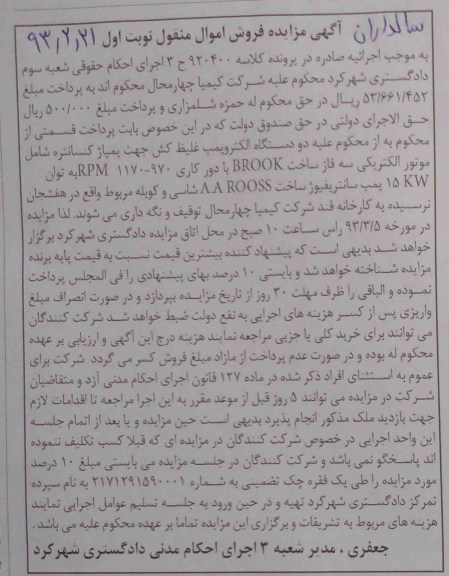 سالداران ۹۳٫۲٫۲۱
آگهی مزایده فروش اموال منقول نوبت اول
به موجب اجرائیه صادره در پرونده کلاسه ۹۲۰۴۰۰ ح ۳ اجرای احکام حقوقی شعبه سوم
دادگستری شهرکرد محکوم علیه شرکت کیمیا چهارمحال محکوم اند به پرداخت مبلغ
۵۳/۶۶۱/۴۵۲ ریال در حق محکوم له حمزه شلمزاری و پرداخت مبلغ ۵۰۰/۰۰۰ ریال
حق الاجرای دولتی در حق صندوق دولت که در این خصوص بابت پرداخت قسمتی از
محکوم به از محکوم علیه دو دستگاه الکتروپمپ غلیظ کش جهت پمپاژ کنسانتره شامل
موتور الکتریکی سه فاز ساخت BROOK با دور کاری ۹۷۰-۱۱۷۰ RPM به توان
۱۵ KW پمپ سانتریفیوژ ساخت A.A ROOSS شاسی و کوپله مربوط واقع در هفشجان
نرسیده به کارخانه قند شرکت کیمیا چهارمحال توقیف و نگه داری می شوند. لذا مزایده
در مورخه ۹۳/۳/۵ راس ساعت ۱۰ صبح در محل اتاق مزایده دادگستری شهرکرد برگزار
خواهد شد بدیهی است که پیشنهاد کننده بیشترین قیمت نسبت به قیمت پایه برنده
مزایده شناخته خواهد شد و بایستی ۱۰ درصد بهای پیشنهادی را فی المجلس پرداخت
نموده و الباقی را ظرف مهلت ۳۰ روز از تاریخ مزایده بپردازد و در صورت انصراف مبلغ
واریزی پس از کسر هزینه های اجرایی به نفع دولت ضبط خواهد شد شرکت کنندگان
می توانند برای خرید کلی یا جزیی مراجعه نمایند هزینه درج این آگهی و ارزیابی بر عهده
محکوم له بوده و در صورت عدم پرداخت از مازاد مبلغ فروش کسر می گردد شرکت برای
عموم به استثنای افراد ذکر شده در ماده ۱۲۷ قانون اجرای احکام مدنی آزد و متقاضیان
شرکت در مزایده می توانند ۵ روز قبل از موعد مقرر به این اجرا مراجعه تا اقدامات لازم
جهت بازدید ملک مذکور انجام پذیرد بدیهی است حین مزایده و یا بعد از اتمام جلسه
این واحد اجرایی در خصوص شرکت کنندگان در مزایده ای که قبلا کسب تکلیف ننموده
اند پاسخگو نمی باشد و شرکت کنندگان در جلسه مزایده می بایستی مبلغ ۱۰ درصد
مورد مزایده را طی یک فقره چک تضمینی به شماره ۲۱۷۱۲۹۱۵۹۰۰۰۱ به نام سپرده
تمرکز دادگستری شهرکرد تهیه و در حین ورود به جلسه تسلیم عوامل اجرایی نمایند
هزینه های مربوط به تشریفات و برگزاری این مزایده تماما بر عهده محکوم علیه می باشد .
جعفری ، مدیر شعبه ۳ اجرای احکام مدنی دادگستری شهرکرد